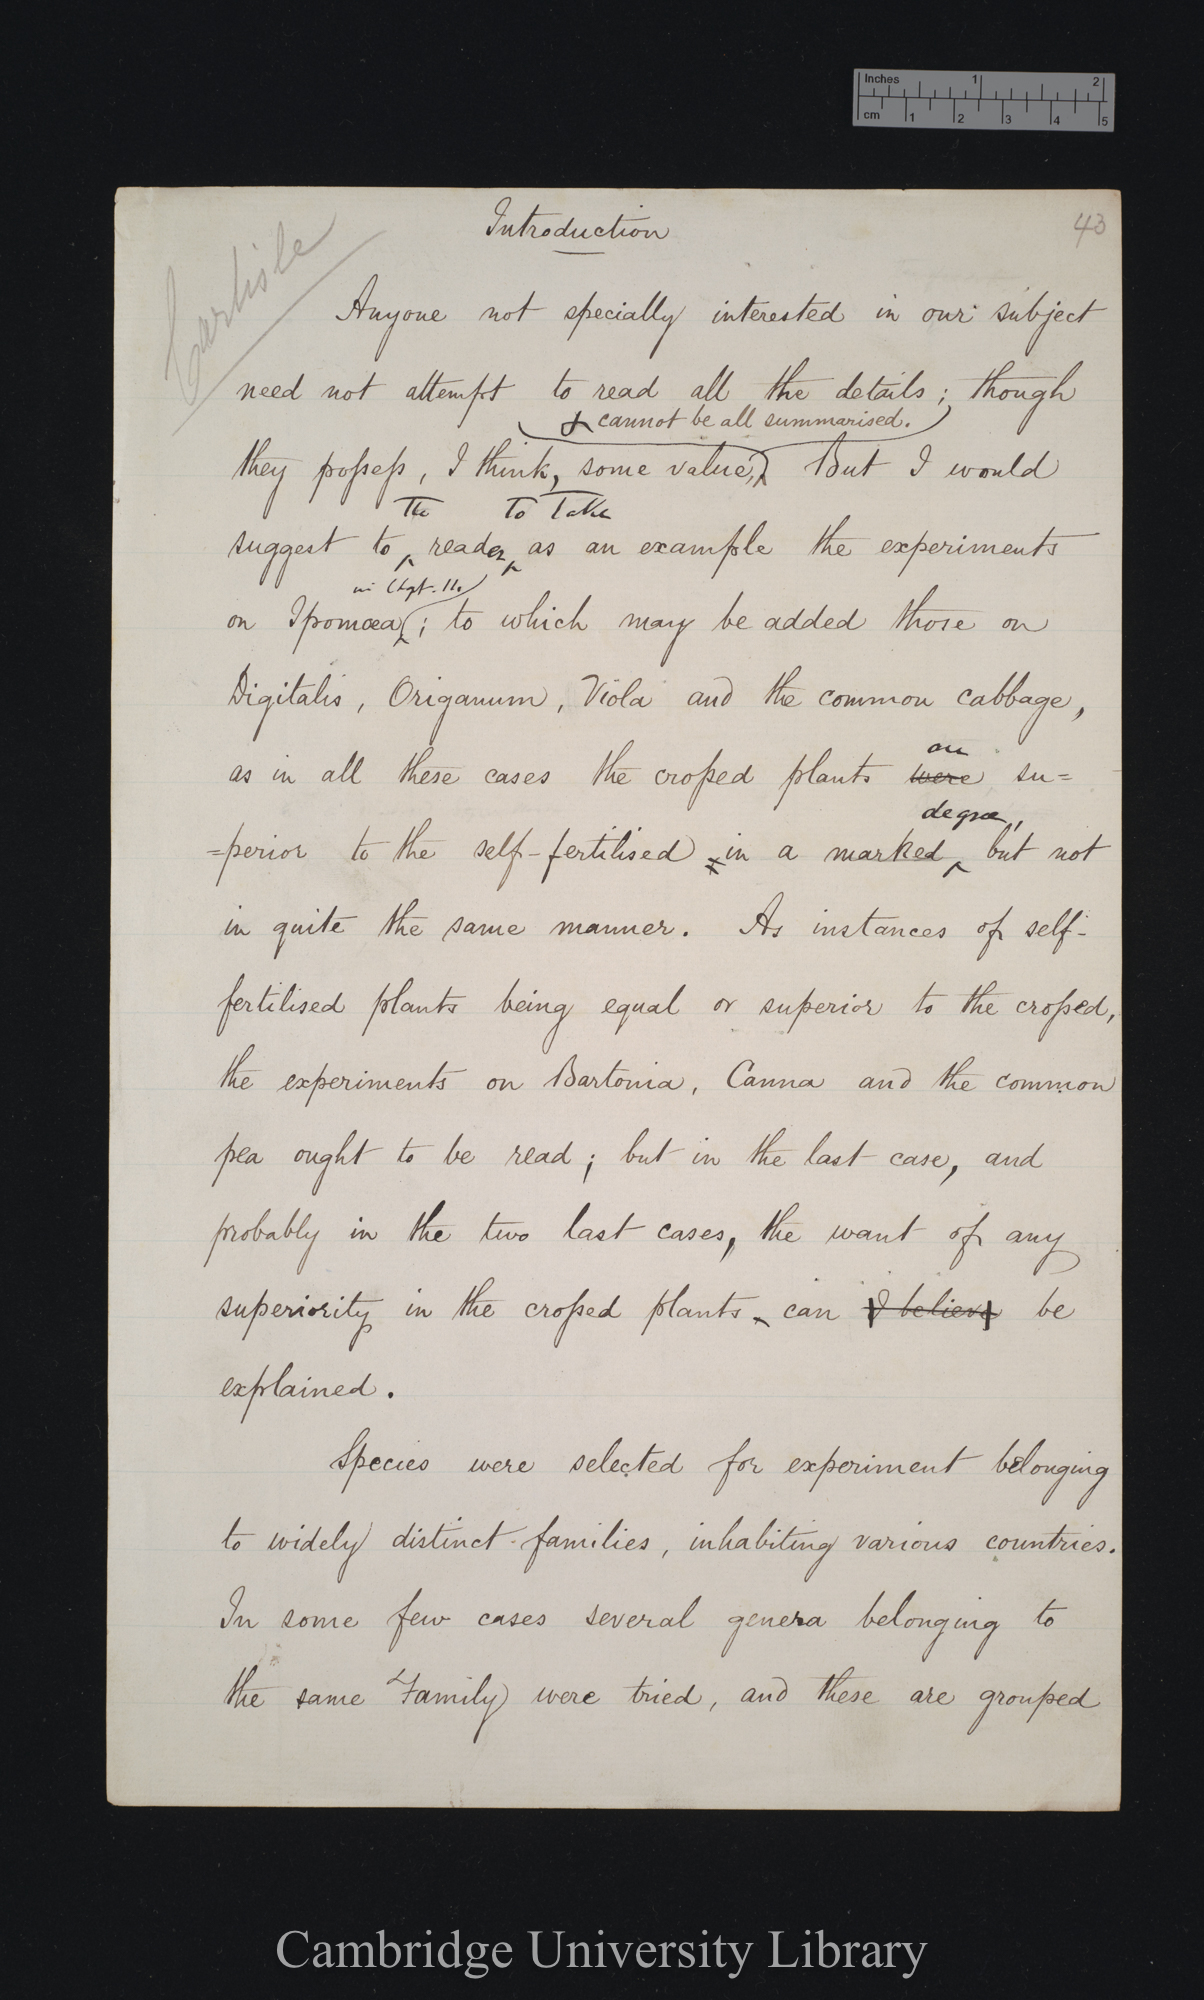 Inches 1 2
cm 1 2 3 4 5
Introduction
43
Carlisle
Anyone not specially interested in our subject
need not attempt to read all the details; though
& cannot be all summarised.
they possess, I think, some value, But I would
The to take
suggest to reader as an example the experiments
in Chpt. II.
on Ipomœa; to which may be added those on
Digitalis, Origanum, Viola and the common cabbage,
as in all these cases the crossed plants were su=
are
degree,
=perior to the self-fertilised in a marked but not
in quite the same manner. As instances of self-
fertilised plants being equal or superior to the crossed,
the experiments on Bartonia, Canna and the common
pea ought to be read; but in the last case, and
probably in the two last cases, the want of any
superiority in the crossed plants can I believe be
explained.
Species were selected for experiment belonging
to widely distinct families, inhabiting various countries.
In some few cases several genera belonging to
the same Family were tried, and these are grouped
Cambridge University Library